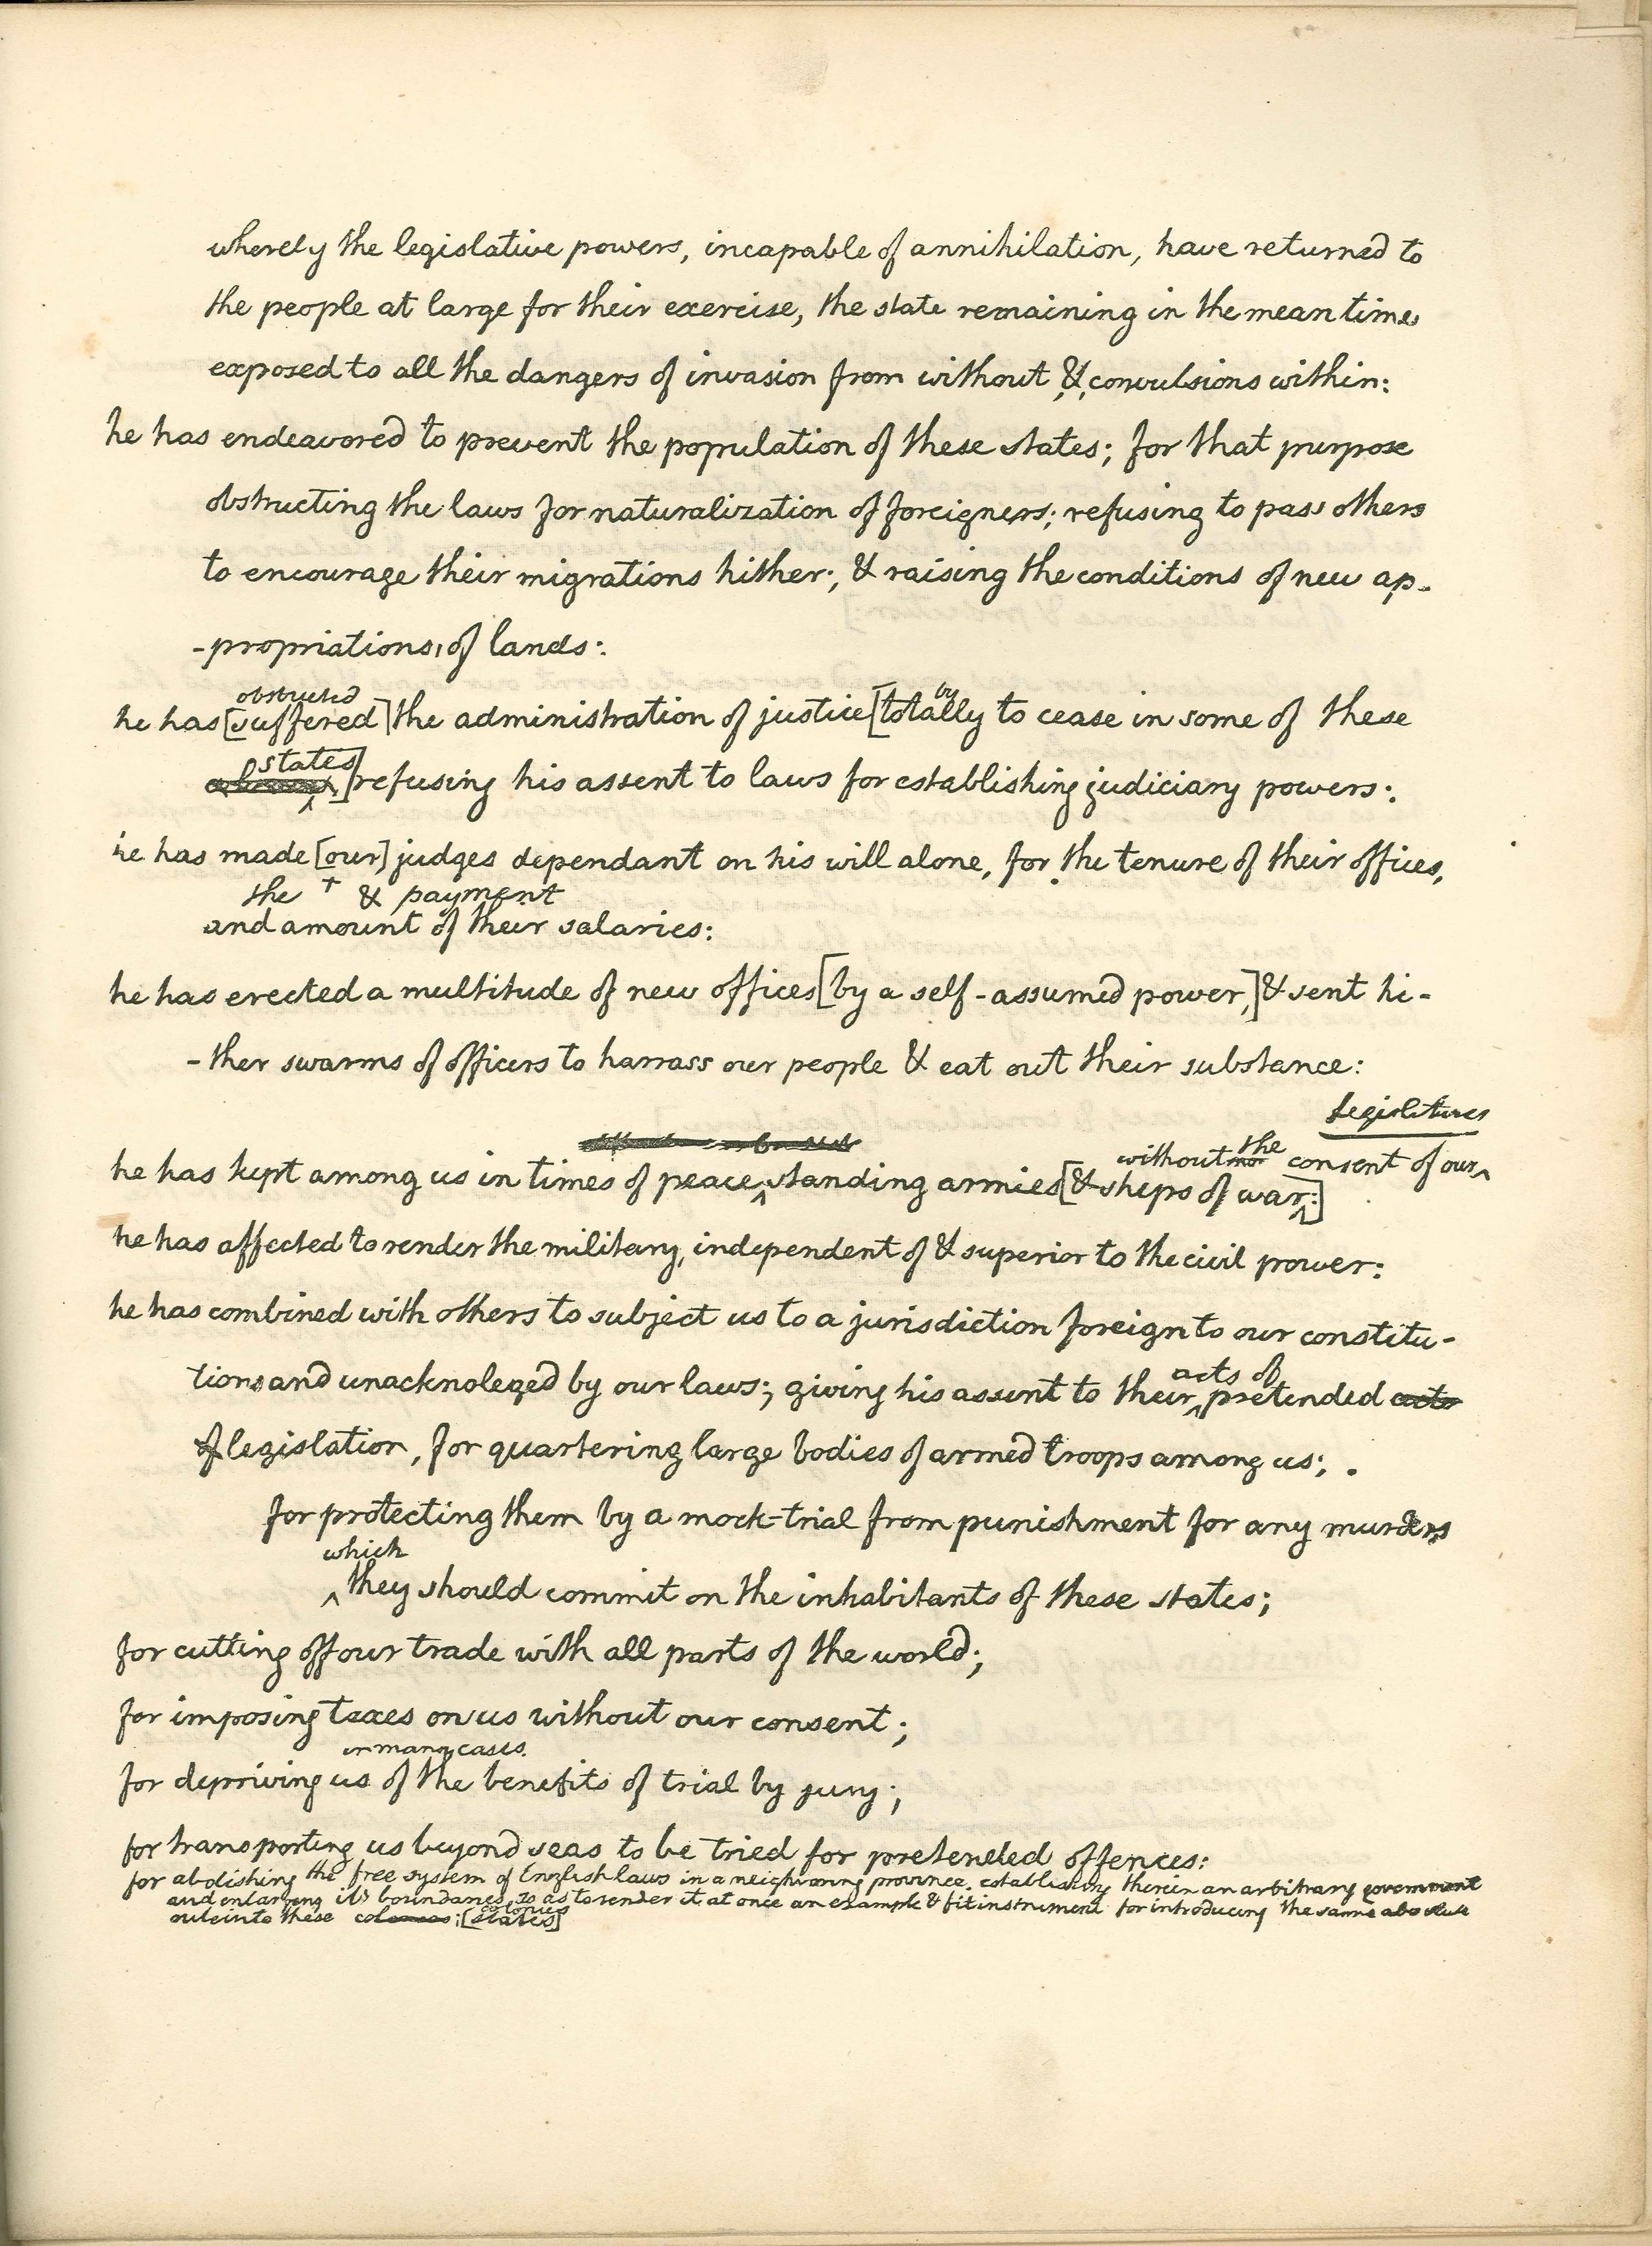 whereby the legislative powers, incapable of annihilation, have returned to
the people at large for their exercise, the state remaining in the mean time
exposed to all the dangers of invasion from without, & convulsions within:
he has endeavored to prevent the population of these states; for that purpose
obstructing the laws for naturalization of foreigners; refusing to pass others
to encourage their migrations hither; & raising the conditions of new ap-
-propriations of lands:
obstructed
by
he has [suffered] the administration of justice [totally to cease in some of these
states
] refusing his assent to laws for establishing judiciary powers:
he has made [our] judges dependant on his will alone, for the tenure of their offices,
the + & payment
and amount of their salaries:
he has erected a multitude of new offices [by a self-assumed power,] & sent hi-
-ther swarms of officers to harrass our people & eat out their substance:
legislatures
without the consent of our ^
he has kept among us in times of peace ^ standing armies [& ships of war:]
he has affected to render the military, independent of & superior to the civil power:
he has combined with others to subject us to a jurisdiction foreign to our constitu-
acts of
tions and unacknoleged by our laws; giving his assent to their ^ pretended acts
of legislation, for quartering large bodies of armed troops among us;
for protecting them by a mock-trial from punishment for any murders
which
^ they should commit on the inhabitants of these states;
for cutting off our trade with all parts of the world;
for imposing taxes on us without our consent;
in many cases
for depriving us of the benefits of trial by jury;
for transporting us beyond seas to be tried for pretended offences:
for abolishing the free system of English laws in a neighboring province, establishing therein an arbitrary government
and enlarging it's boundaries so as to render it at once an example & fit instrument for introducing the same absolute
colonies
rule into these colonies; [states]